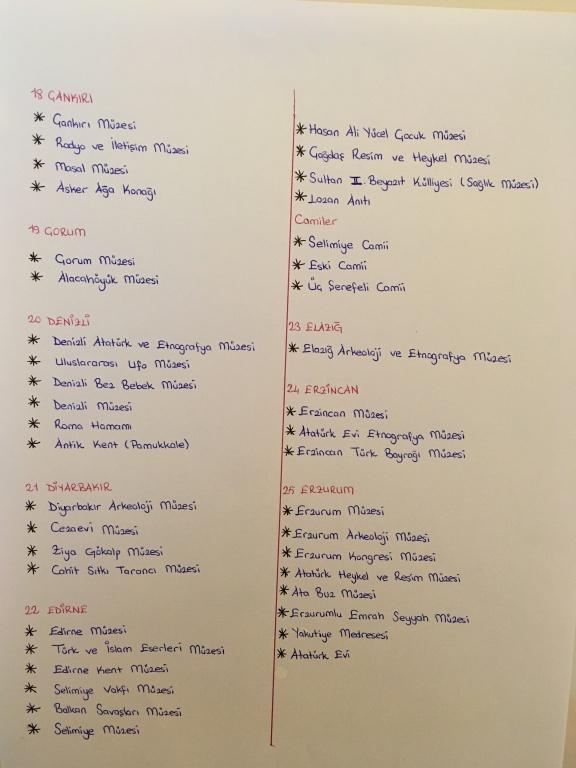 18 ÇANKIRI
* Çankırı Müzesi
* Radyo ve İletişim Müzesi
* Masal Müzesi
* Asker Ağa Konağı
19 ÇORUM
* Çorum Müzesi
* Alacahöyük Müzesi
20 DENİZLİ
* Denizli Atatürk ve Etnografya Müzesi
* Uluslararası Ufo Müzesi
* Denizli Bez Bebek Müzesi
* Denizli Müzesi
* Roma Hamamı
* Antik Kent (Pamukkale)
21 DİYARBAKIR
* Diyarbakır Arkeoloji Müzesi
* Cezaevi Müzesi
* Ziya Gökalp Müzesi
* Cahit Sıtkı Tarancı Müzesi
22 EDİRNE
* Edirne Müzesi
* Türk ve İslam Eserleri Müzesi
* Edirne Kent Müzesi
* Selimiye Vakfı Müzesi
* Balkan Savaşları Müzesi
* Selimiye Müzesi
* Hasan Ali Yücel Çocuk Müzesi
* Çağdaş Resim ve Heykel Müzesi
* Sultan II. Beyazıt Külliyesi (Sağlık Müzesi)
* Lozan Anıtı
Camiler
* Selimiye Camii
* Eski Camii
* Üç Şerefeli Camii
23 ELAZIĞ
* Elazığ Arkeoloji ve Etnografya Müzesi
24 ERZİNCAN
* Erzincan Müzesi
* Atatürk Evi Etnografya Müzesi
* Erzincan Türk Bayrağı Müzesi
25 ERZURUM
* Erzurum Müzesi
* Erzurum Arkeoloji Müzesi
* Erzurum Kongresi Müzesi
* Atatürk Heykel ve Resim Müzesi
* Ata Buz Müzesi
* Erzurumlu Emrah Seyyah Müzesi
* Yakutiye Medresesi
* Atatürk Evi